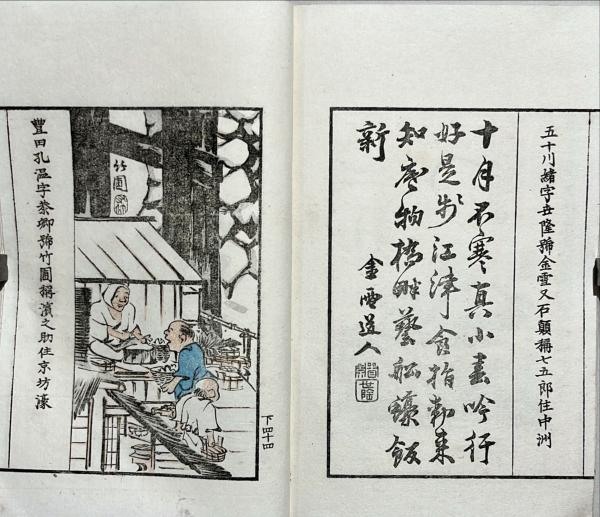 五十川緒字世隆號金雪又石顛稱七五郎住中洲
十月不寒真小春吟行
好是步江津食指動來
知底物橋畔藝船蠔飯
新
金雪道人
下四十四
竹圃
豐田孔温字泰卿號竹圃稱濱之助住京坊濠